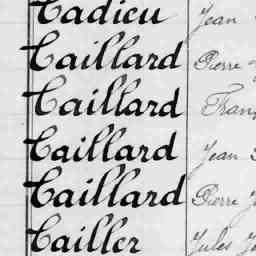 Cadieu Jean
Caillard Pierre
Caillard
Caillard Jean
Caillard Pierre
Cailler Jules